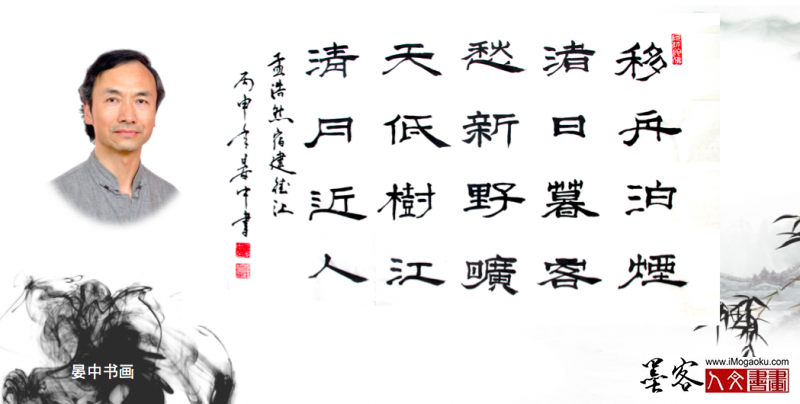 移舟泊煙
渚日暮客
愁新野曠
天低樹江
清月近人
孟浩然宿建德江
丙申 晏中書
晏中书画
墨客
www.iMogaoku.com
人文書畫